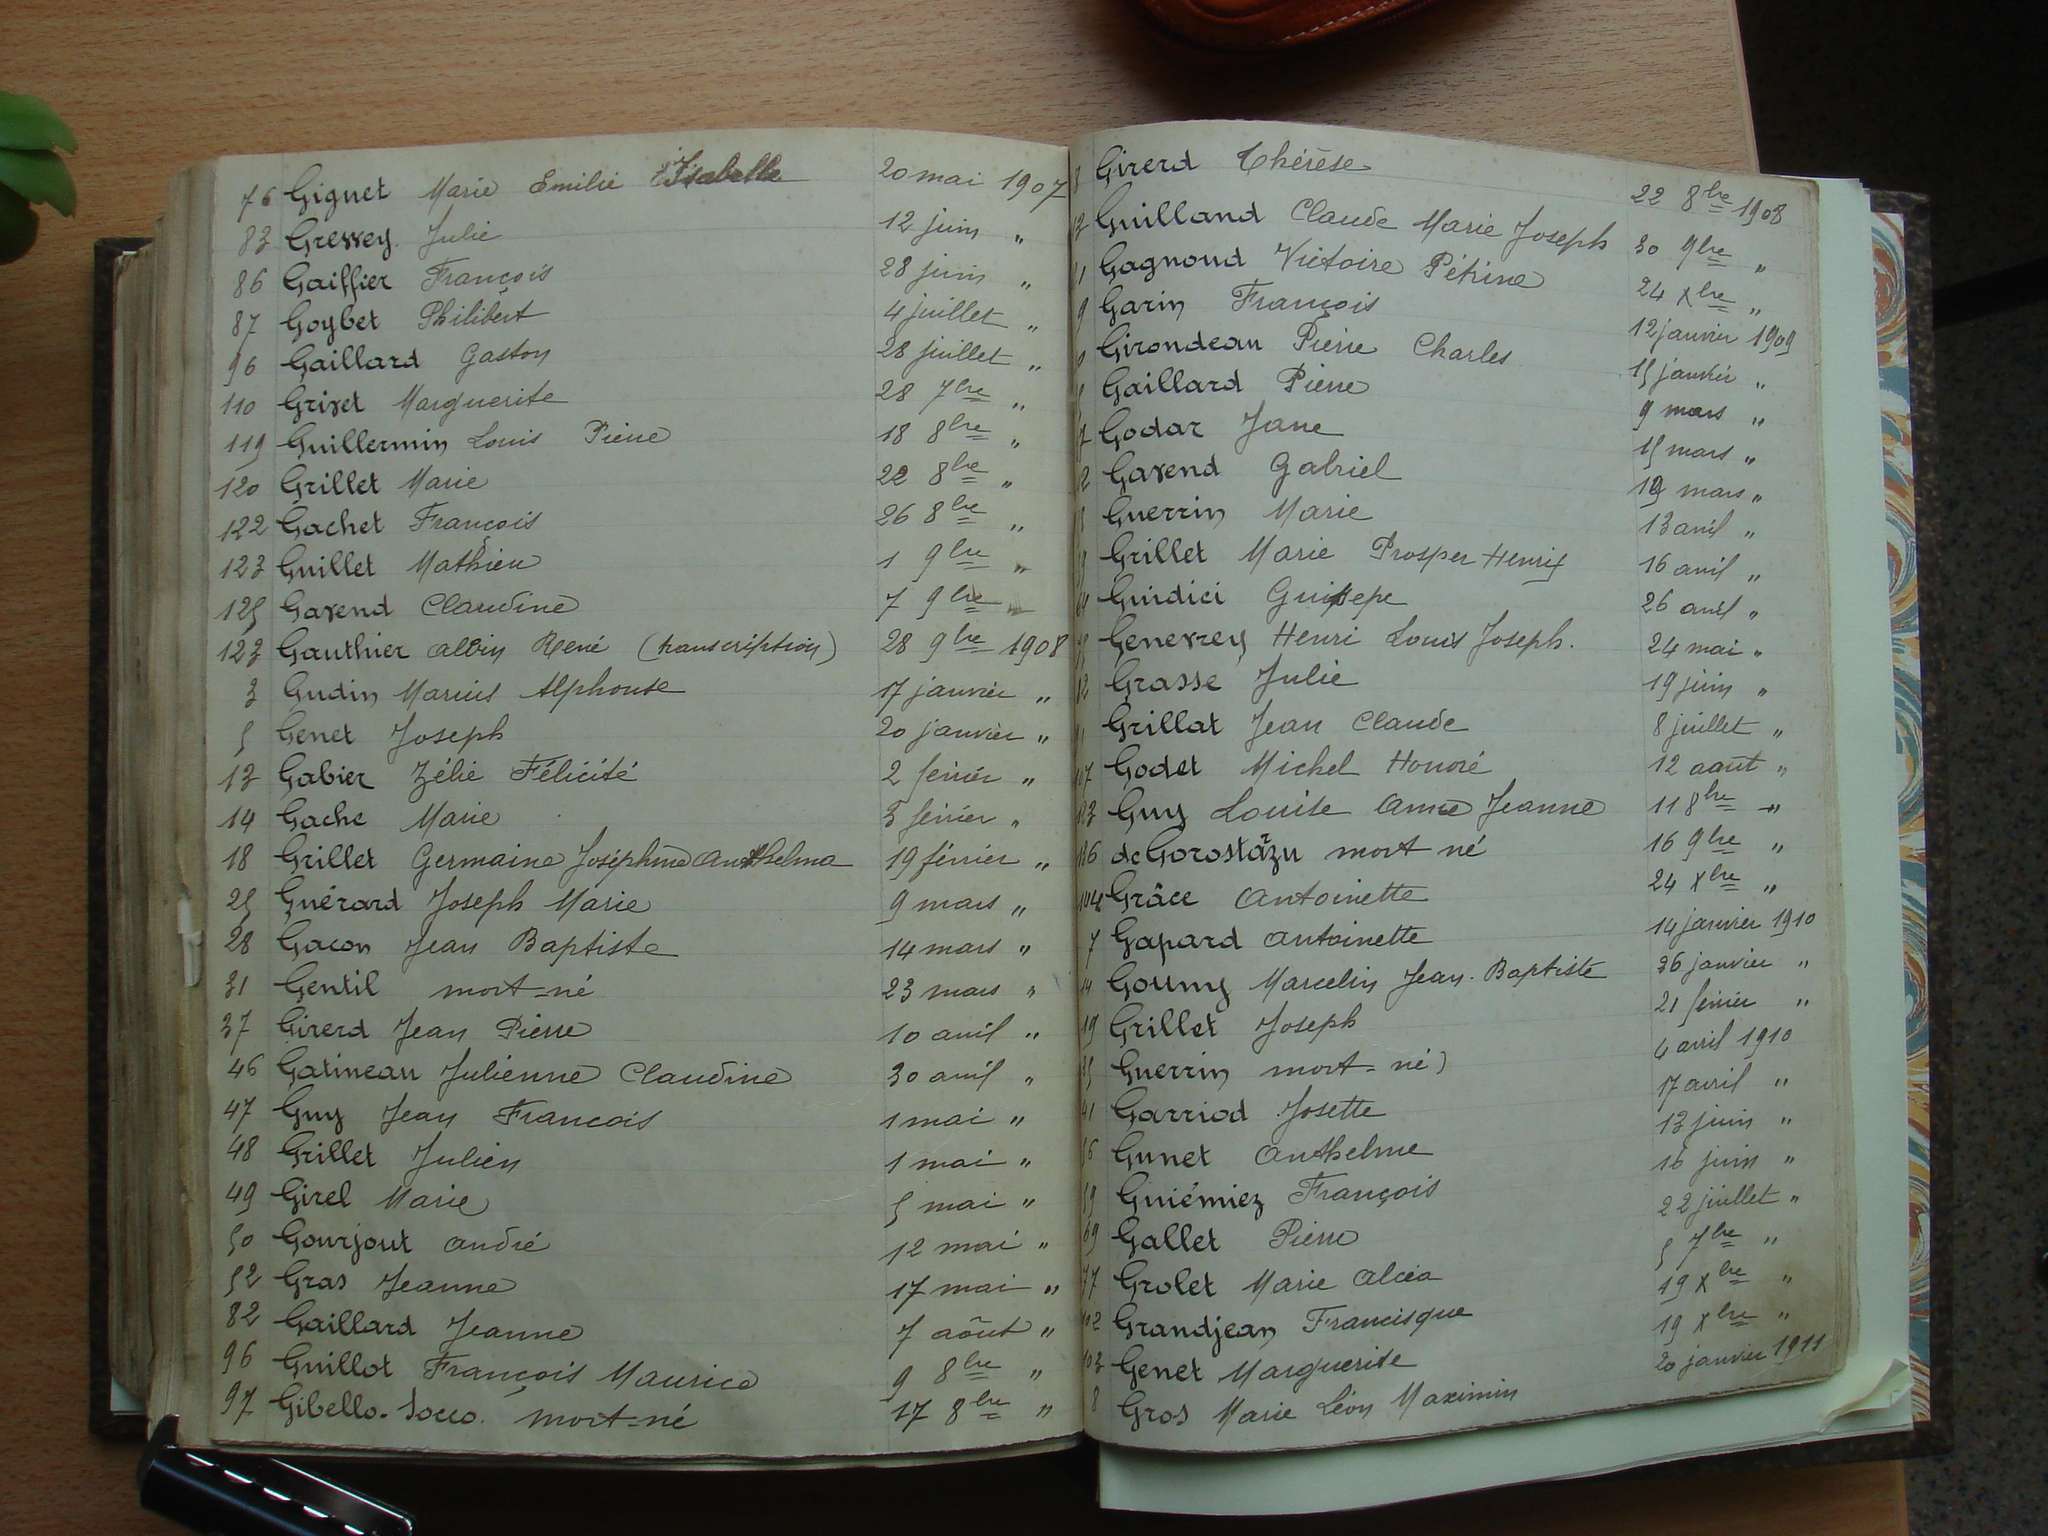 76 Giguet Marie Emilie Isabelle 20 mai 1907
83 Gressey Julie 12 juin "
86 Gaiffier François 28 juin "
87 Goybet Philibert 4 juillet "
96 Gaillard Gaston 28 juillet "
110 Grivet Marguerite 28 7bre "
119 Guillermin Louis Pierre 18 8bre "
120 Grillet Marie 22 8bre "
122 Gachet François 26 8bre "
123 Guillet Mathieu 1 9bre "
125 Gavend Claudine 7 9bre "
123 Gauthier Albin René (transcription) 28 9bre 1908
3 Gudin Marius Alphonse 17 janvier "
5 Genet Joseph 20 janvier "
13 Gabier Zélie Félicité 2 février "
14 Gache Marie 3 février "
18 Grillet Germaine Joséphine Anthelma 19 février "
25 Guérard Joseph Marie 9 mars "
28 Gacon Jean Baptiste 14 mars "
31 Gentil mort-né 23 mars "
37 Girerd Jean Pierre 10 avril "
46 Gatineau Julienne Claudine 30 avril "
47 Guy Jean François 1 mai "
48 Grillet Julien 1 mai "
49 Girel Marie 5 mai "
50 Gourjout André 12 mai "
52 Gras Jeanne 17 mai "
82 Gaillard Jeanne 7 aôut "
96 Guillot François Maurice 9 8bre "
97 Gibello-Socco. mort-né 17 8bre "
Girerd Thérèse 22 8bre 1908
Guilland Claude Marie Joseph 30 9bre "
Gagnoud Victoire Pétrine 24 Xbre "
Garin François 12 janvier 1909
Girondeau Pierre Charles 15 janvier "
Gaillard Pierre 9 mars "
Godar Jane 15 mars "
Gavend Gabriel mars "
Guerrin Marie 13 avril "
Grillet Marie Prosper Henri 16 avril "
Guidici Guisepe 26 avril "
Genevrey Henri Louis Joseph. 24 mai "
Grasse Julie 19 juin "
Grillat Jean Claude 8 juillet "
107 Godet Michel Honoré 12 août "
Guy Louise Anne Jeanne 11 8bre "
de Gorostazu mort né 16 9bre "
Grâce Antoinette 24 Xbre "
7 Gapard Antoinette 14 janvier 1910
Goumy Marcelin Jean-Baptiste 26 janvier "
19 Grillet Joseph 21 février "
Guerrin mort-né 4 avril 1910
41 Garriod Josette 17 avril "
Gunet Anthelme 13 juin "
59 Guiémiez François 16 juin "
69 Gallet Pierre 22 juillet "
77 Grolet Marie Alcéa 5 7bre "
102 Grandjean Francisque 19 Xbre "
103 Genet Marguerite 19 Xbre "
8 Gros Marie Léon Maximin 20 janvier 1911